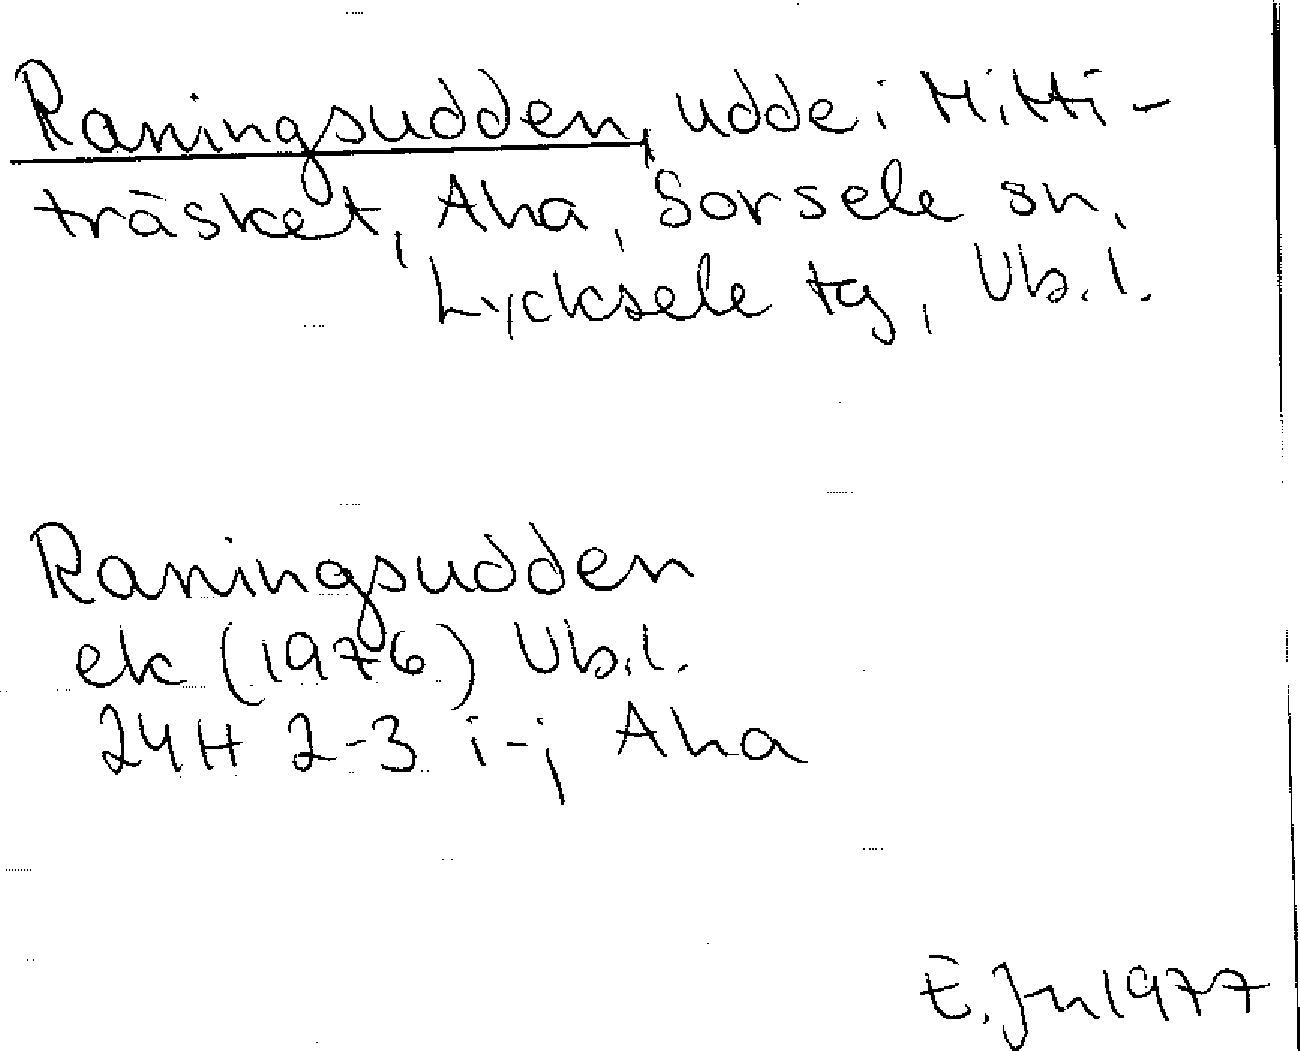 Raningsudden, udde i Mitti-
träsket, Aha, Sorsele sn,
Lycksele tg, Vb.l.
Raningsudden
ek (1976) Vb.l.
24H 2-3 i-j Aha
E. Jn 1977